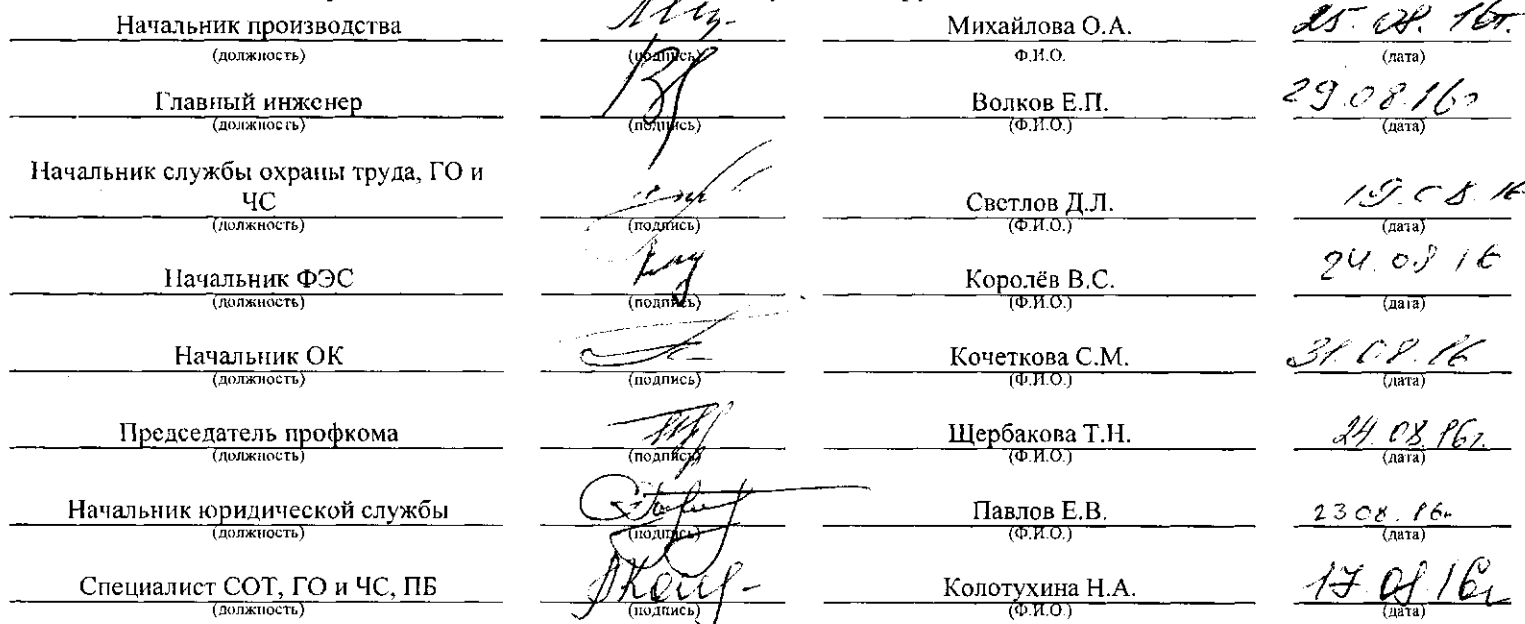 Начальник производства Михайлова О.А. 25.08.16г.
(должность) (подпись) Ф.И.О. (дата)
Главный инженер Волков Е.П. 29.08.16г
(должность) (подпись) (Ф.И.О.) (дата)
Начальник службы охраны труда, ГО и
ЧС Светлов Д.Л. 19.08.16
(должность) (подпись) (Ф.И.О.) (дата)
Начальник ФЭС Королёв В.С. 24.08 16
(должность) (подпись) (Ф.И.О.) (дата)
Начальник ОК Кочеткова С.М. 31.08.16
(должность) (подпись) (Ф.И.О.) (дата)
Председатель профкома Щербакова Т.Н. 24.08.16г.
(должность) (подпись) (Ф.И.О.) (дата)
Начальник юридической службы Павлов Е.В. 23 08.16г
(должность) (подпись) (Ф.И.О.) (дата)
Специалист СОТ, ГО и ЧС, ПБ Колотухина Н.А. 17.08.16г
(должность) (подпись) (Ф.И.О.) (дата)